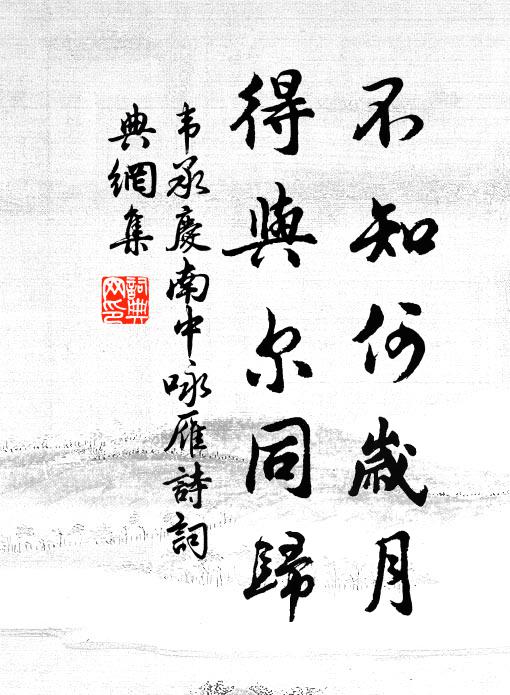 不知何歲月
得與尔同歸
韦承慶南中咏雁詩詞
典網集
詞典
网印